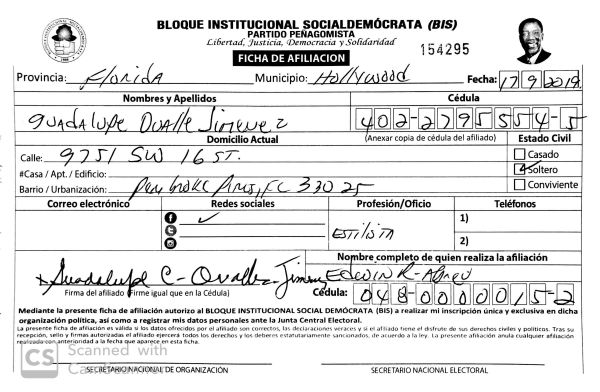 BLOQUE INSTITUCIONAL SOCIALDEMÓCRATA (BIS)
PARTIDO PEÑAGOMISTA
Libertad, Justicia, Democracia y Solidaridad
154295
FICHA DE AFILIACION
Provincia: Florida Municipio: Hollywood Fecha: 17/9/2019
Nombres y Apellidos Cédula
Guadalupe Ovalle Jimenez 402-2795554-5
Domicilio Actual (Anexar copia de cédula del afiliado) Estado Civil
Calle: 9751 SW 16 ST. Casado
#Casa / Apt. / Edificio: Soltero
Barrio / Urbanización: Pembroke Pines, FL 33025 Conviviente
Correo electrónico Redes sociales Profesión/Oficio Teléfonos
1)
Estilista
2)
Nombre completo de quien realiza la afiliación
Guadalupe C-Ovalle Jimenez Edwin R-Abreu
Firma del afiliado (Firme igual que en la Cédula) Cédula: 048-0000015-2
Mediante la presente ficha de afiliación autorizo al BLOQUE INSTITUCIONAL SOCIAL DEMÓCRATA (BIS) a realizar mi inscripción única y exclusiva en dicha
organización política, así como a registrar mis datos personales ante la Junta Central Electoral.
La presente ficha de afiliación es válida si los datos ofrecidos por el afiliado son correctos, las declaraciones veraces y si el afiliado tiene el disfrute de sus derechos civiles y políticos. Tras su
recepción, sello y firmas autorizadas el afiliado ejercerá todos los derechos y los deberes estatutariamente sancionados, de acuerdo a la ley. La presente afiliación anula cualquier afiliación
realizada con anterioridad a la fecha que aparece en esta ficha.
CS Scanned with
CamScanner
SECRETARIO NACIONAL DE ORGANIZACIÓN SECRETARIO NACIONAL ELECTORAL